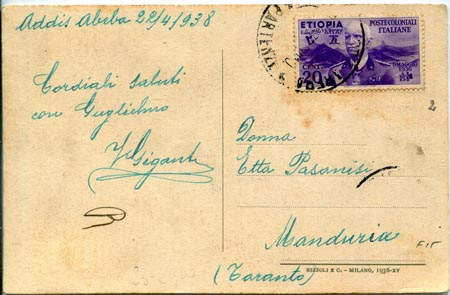 Addis Abeba 22/4/938
ETIOPIA
POSTE COLONIALI
ITALIANE
9 MAGGIO
1936
CENT.
20
PARTENZ
Cordiali saluti
con
Gigant
2
Donna
Etta Pasanisi
Manduria
F 15
(Taranto)
RIZZOLI E C. - MILANO, 1936-XV